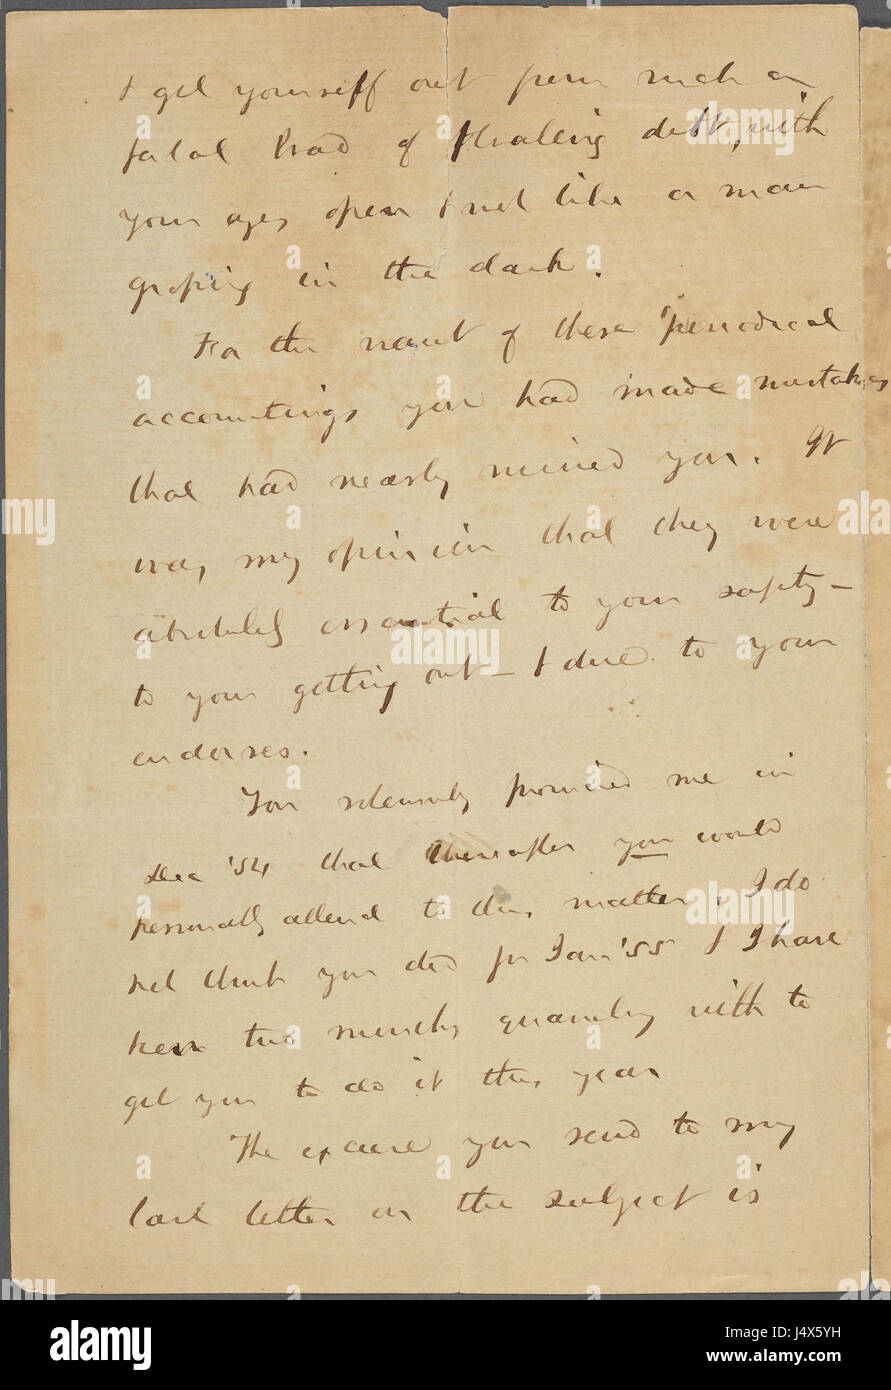 & get yourself out from such a
fatal load of floating debt, with
your eyes open & not like a man
groping in the dark.
For the want of these periodical
accountings you had made mistakes
that had nearly ruined you. It
was my opinion that they were
absolutely essential to your safety—
to your getting out— & due to your
endorses.
You solemnly promised me in
Dec '54 that thereafter you would
personally attend to this matter. I do
not think you did for Jan '55 & I have
been two months quarreling with to
get you to do it this year
The excuse you send to my
last letter on the subject is
alamy
Image ID: J4X5YH
www.alamy.com